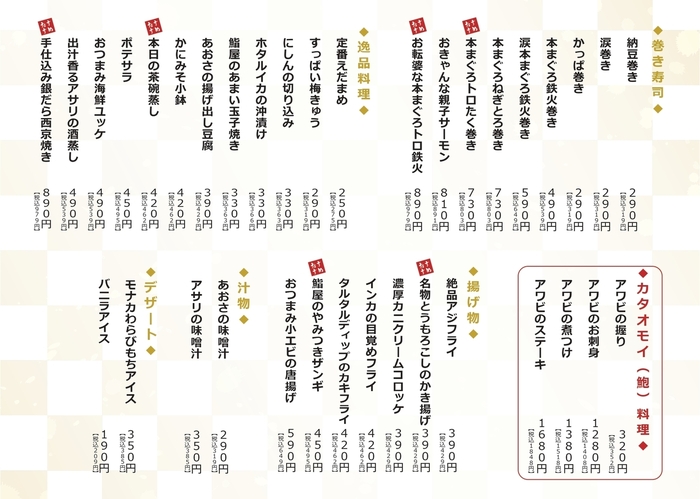 ◆巻き寿司◆
納豆巻き 290円【税込319円】
涙巻き 290円【税込319円】
かっぱ巻き 290円【税込319円】
本まぐろ鉄火巻き 490円【税込539円】
涙本まぐろ鉄火巻き 590円【税込649円】
本まぐろねぎとろ巻き 730円【税込803円】
おすすめ 本まぐろトロたく巻き 730円【税込803円】
おきゃんな親子サーモン 810円【税込891円】
お転婆な本まぐろトロ鉄火 890円【税込979円】
◆逸品料理◆
定番えだまめ 250円【税込275円】
すっぱい梅きゅう 290円【税込319円】
にしんの切り込み 330円【税込363円】
ホタルイカの沖漬け 330円【税込363円】
鮨屋のあまい玉子焼き 330円【税込363円】
あおさの揚げ出し豆腐 390円【税込429円】
かにみそ小鉢 420円【税込462円】
おすすめ 本日の茶碗蒸し 420円【税込462円】
ポテサラ 450円【税込495円】
おつまみ海鮮ユッケ 490円【税込539円】
出汁香るアサリの酒蒸し 490円【税込539円】
おすすめ 手仕込み銀だら西京焼き 890円【税込979円】
◆カタオモイ（鮑）料理◆
アワビの握り 320円【税込352円】
アワビのお刺身 1280円【税込1408円】
アワビの煮つけ 1380円【税込1518円】
アワビのステーキ 1680円【税込1848円】
◆揚げ物◆
絶品アジフライ 390円【税込429円】
おすすめ 名物とうもろこしのかき揚げ 390円【税込429円】
濃厚カニクリームコロッケ 390円【税込429円】
インカの目覚めフライ 420円【税込462円】
タルタルディップのカキフライ 420円【税込462円】
おすすめ 鮨屋のやみつきザンギ 450円【税込495円】
おつまみ小エビの唐揚げ 590円【税込649円】
◆汁物◆
あおさの味噌汁 290円【税込319円】
アサリの味噌汁 350円【税込385円】
◆デザート◆
モナカわらびもちアイス 350円【税込385円】
バニラアイス 190円【税込209円】